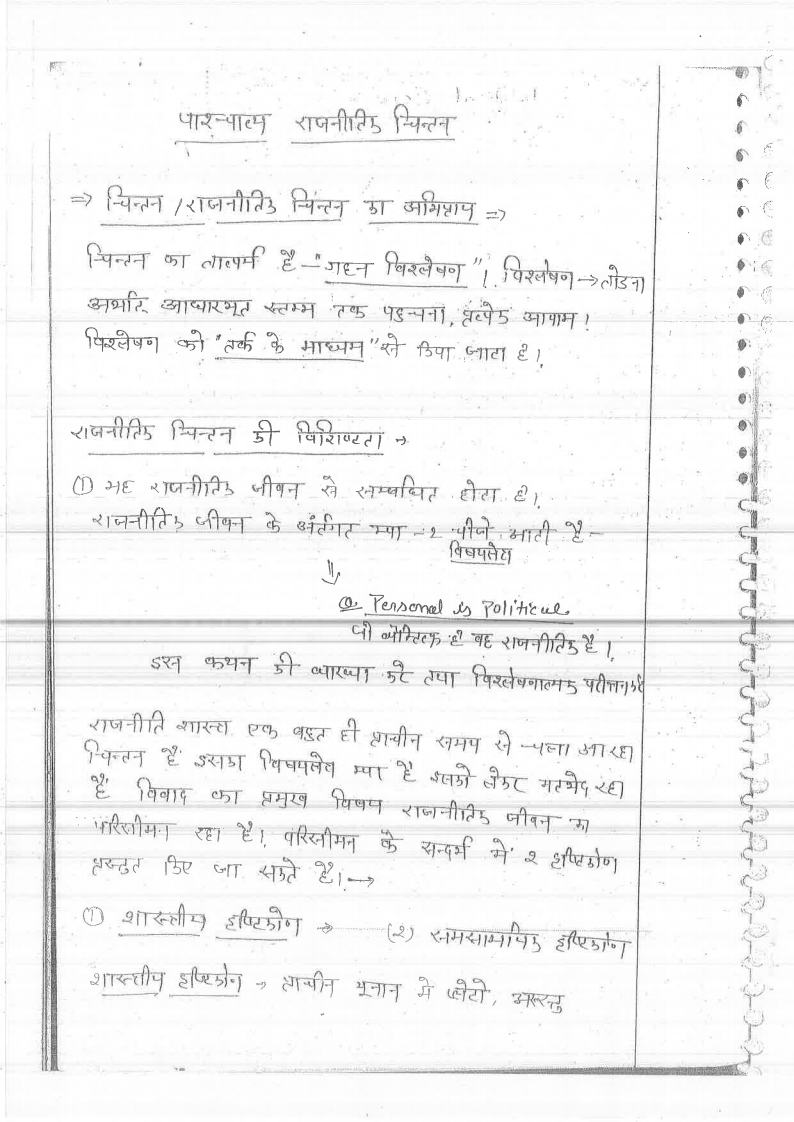 पाश्चात्य राजनीतिक चिन्तन
⇒ चिन्तन / राजनीतिक चिंन्तन का अभिप्राय ⇒
चिन्तन का तात्पर्य है – "गहन विश्लेषण"। विश्लेषण → तोडना
अर्थात् आधारभूत स्तम्भ तक पहुचना, प्रत्येक आयाम।
विश्लेषण को "तर्क के माध्यम" से किया जाता है।
राजनीतिक चिन्तन की विशिष्टता →
① यह राजनीतिक जीवन से सम्बन्धित होता है।
राजनीतिक जीवन के अंर्तगत क्या-२ चीजे आती है –
विषयक्षेत्र
⇓
Q. Personal is Political
जो वैयक्तिक है वह राजनीतिक है।
इस कथन की व्याख्या करे तथा विश्लेषणात्मक परीक्षण करे
राजनीति शास्त्र एक बहुत ही प्राचीन समय से चला आ रहा
चिन्तन है इसका विषयक्षेत्र क्या है इसको लेकर मतभेद रहा
है विवाद का प्रमुख विषय राजनीतिक जीवन का
परिसीमन रहा है। परिसीमन के सन्दर्भ में २ दृष्टिकोण
प्रस्तुत किए जा सकते है। →
① शास्त्रीय दृष्टिकोण → (२) समसामायिक दृष्टिकोण
शास्त्रीय दृष्टिकोण → प्राचीन यूनान मे प्लेटो, अरस्तु